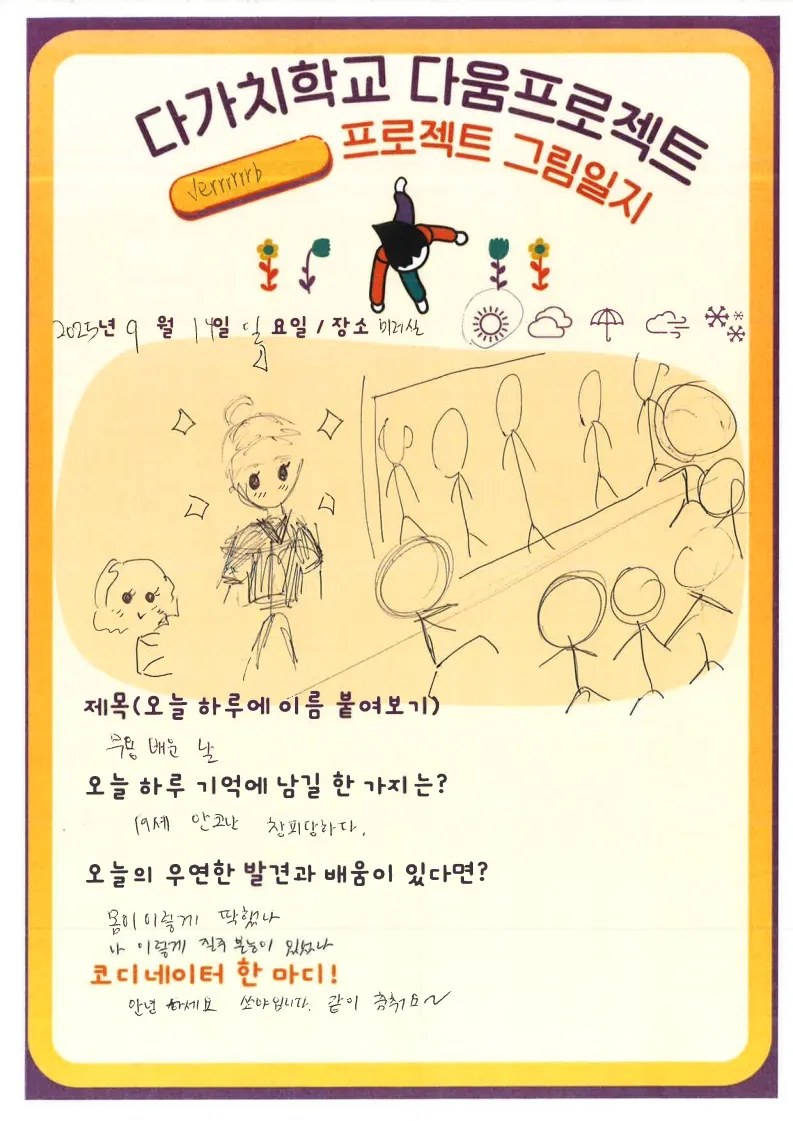 다가치학교 다움프로젝트
프로젝트 그림일지
verrrrrb
2025년 9 월 14일 일 요일 / 장소 미러실
제목(오늘 하루에 이름 붙여보기)
무용 배운 날
오늘 하루 기억에 남길 한 가지는?
19세 안코난 창피당하다.
오늘의 우연한 발견과 배움이 있다면?
몸이 이렇게 딱했나
나 이렇게 질주 본능이 있었나
코디네이터 한 마디!
안녕하세요 쏘야입니다. 같이 춤춰요~